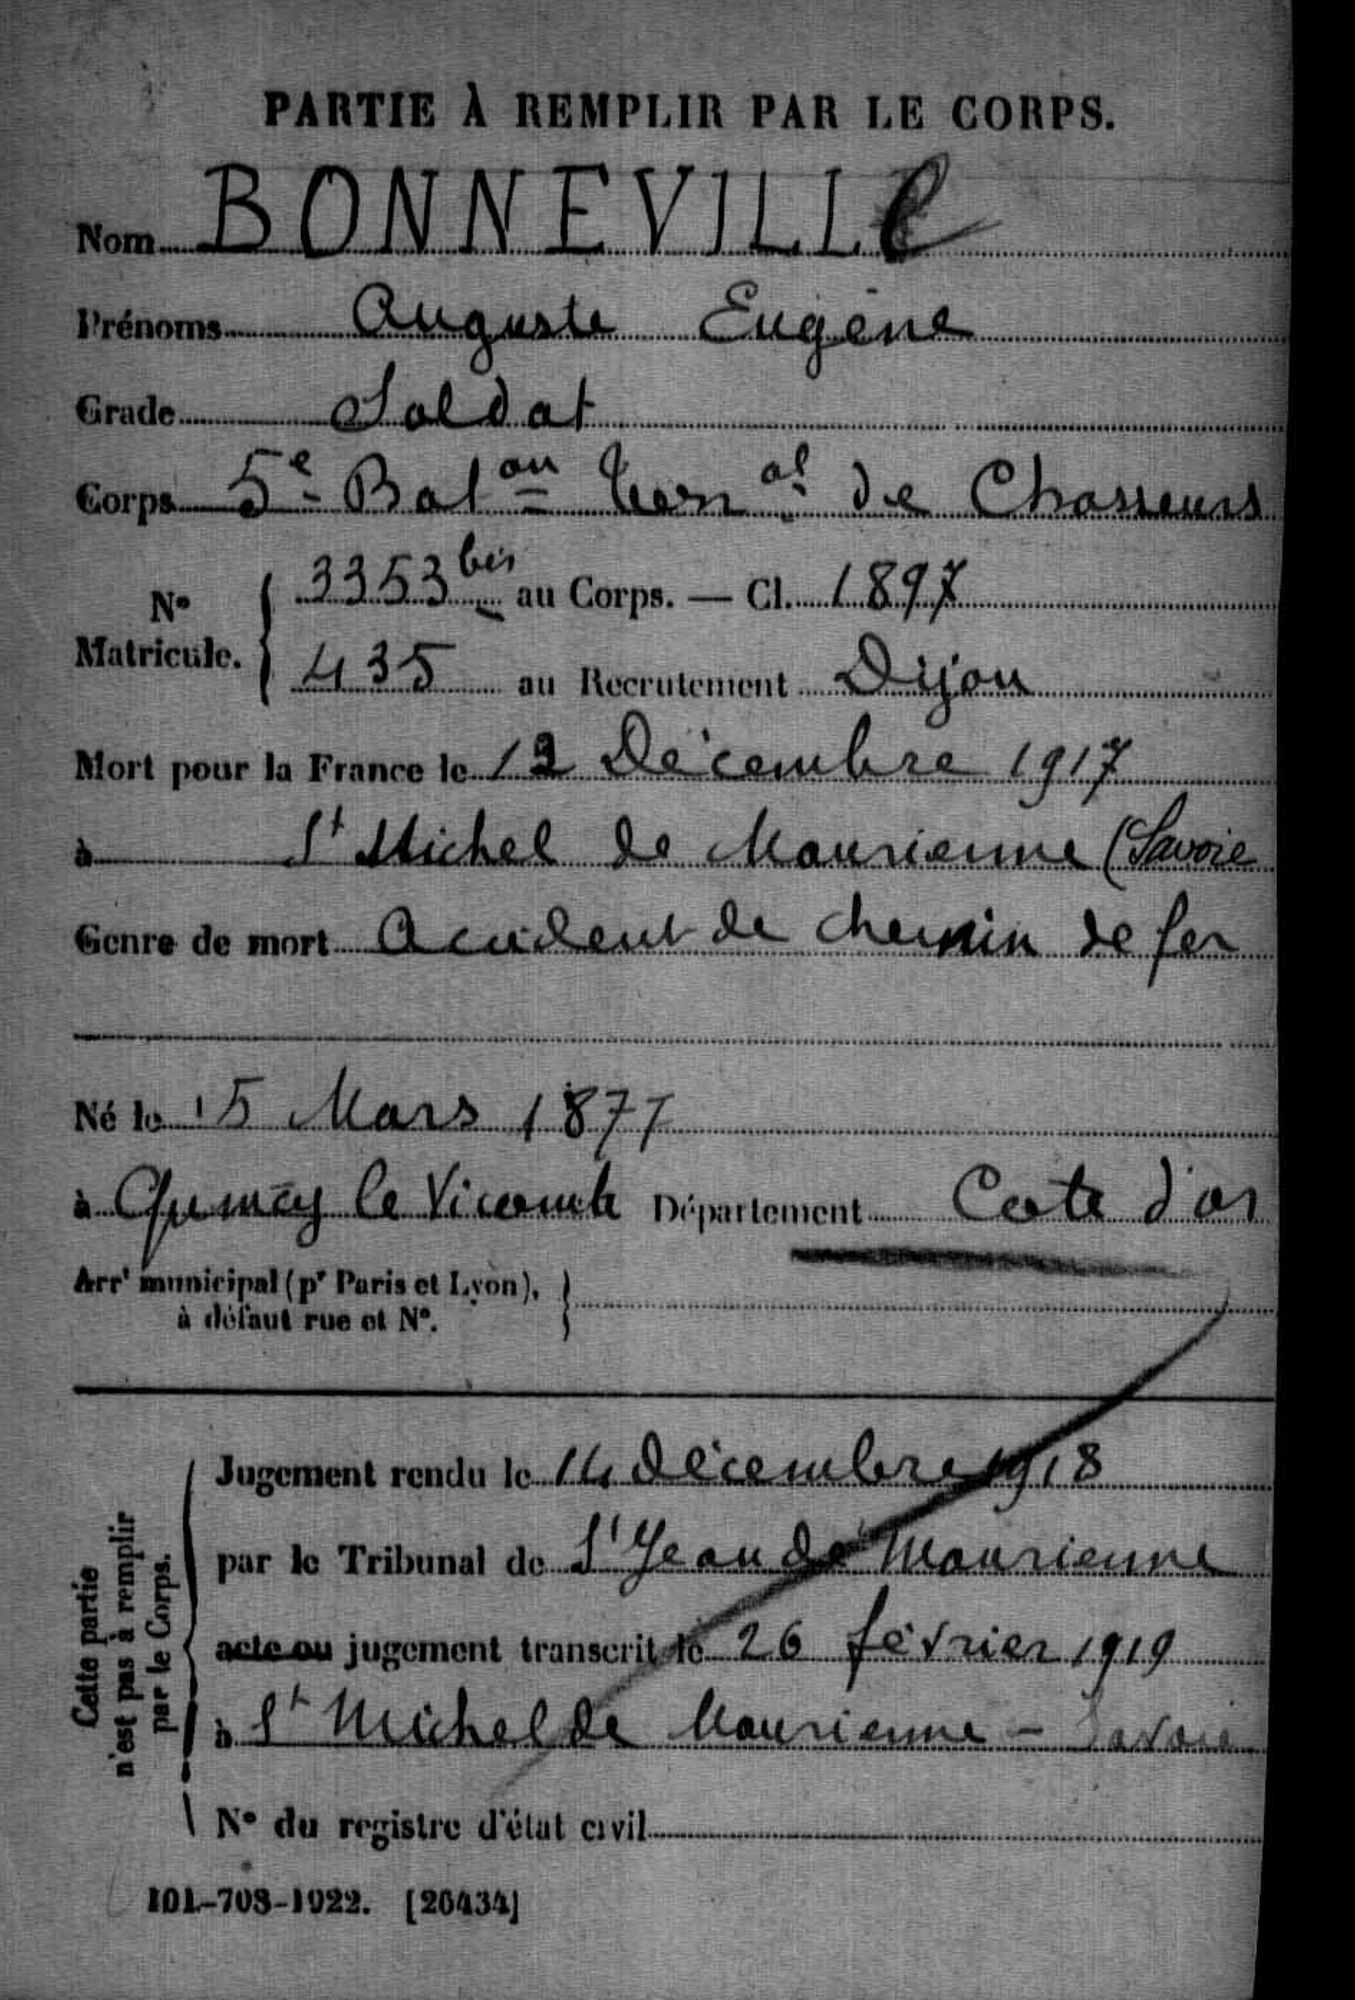 PARTIE À REMPLIR PAR LE CORPS.
Nom BONNEVILLE
Prénoms Auguste Eugène
Grade Soldat
Corps 5e Bat on Terr al de Chasseurs
No Matricule. { 3353 bis au Corps. — Cl. 1897
435 au Recrutement Dijon
Mort pour la France le 12 Décembre 1917
à St Michel de Maurienne (Savoie
Genre de mort Accident de chemin de fer
Né le 15 Mars 1877
à Quincey le Vicomte Département Cote d'or
Arrt municipal (pr Paris et Lyon),
à défaut rue et No.
Cette partie
n'est pas à remplir
par le Corps.
Jugement rendu le 14 décembre 1918
par le Tribunal de St Jean de Maurienne
acte ou jugement transcrit le 26 février 1919
à St Michel de Maurienne - Savoie
No du registre d'état civil
101-708-1922. [26434]